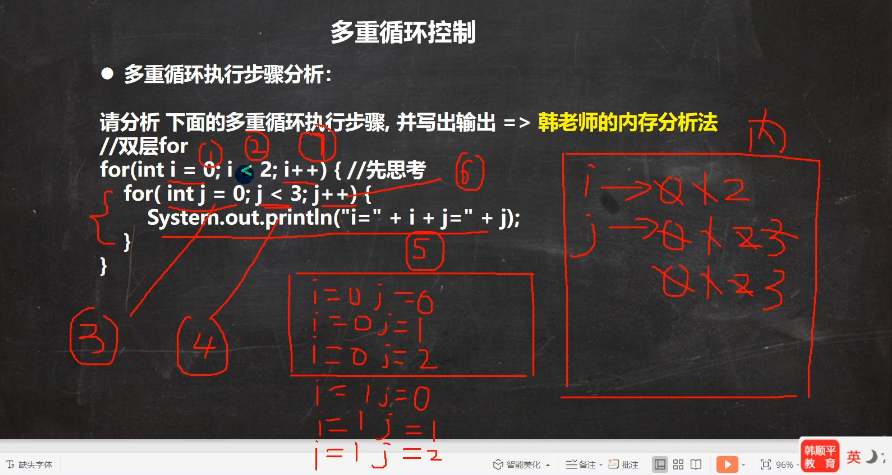 多重循环控制
● 多重循环执行步骤分析：
请分析 下面的多重循环执行步骤, 并写出输出 => 韩老师的内存分析法
//双层for
① ② ⑦
内
for(int i = 0; i < 2; i++) { //先思考
⑥
for( int j = 0; j < 3; j++) {
System.out.println("i=" + i + j=" + j);
}
}
⑤
③
④
i=0 j=0
i=0 j=1
i=0 j=2
i=1 j=0
i=1 j=1
i=1 j=2
i→0 1 2
j→0 1 2 3
0 1 2 3
缺头字体
智能美化
备注
批注
96%
韩顺平
教 育
英